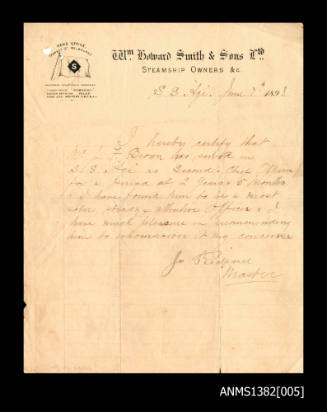 HEAD OFFICE,
MARKET ST MELBOURNE
S
Wm. Howard Smith & Sons Ltd.
STEAMSHIP OWNERS &c.
S. S. Age. June 7th 1893
I hereby certify that
Mr L F Brown has served in
S. S. Age as Second & Chief Officer
for a period of 2 Years 5 Months
& I have found him to be a most
sober steady & attentive Officer & I
have much pleasure in recommending
him to whomsoever it may concerne
Master
ANMS1382[005]